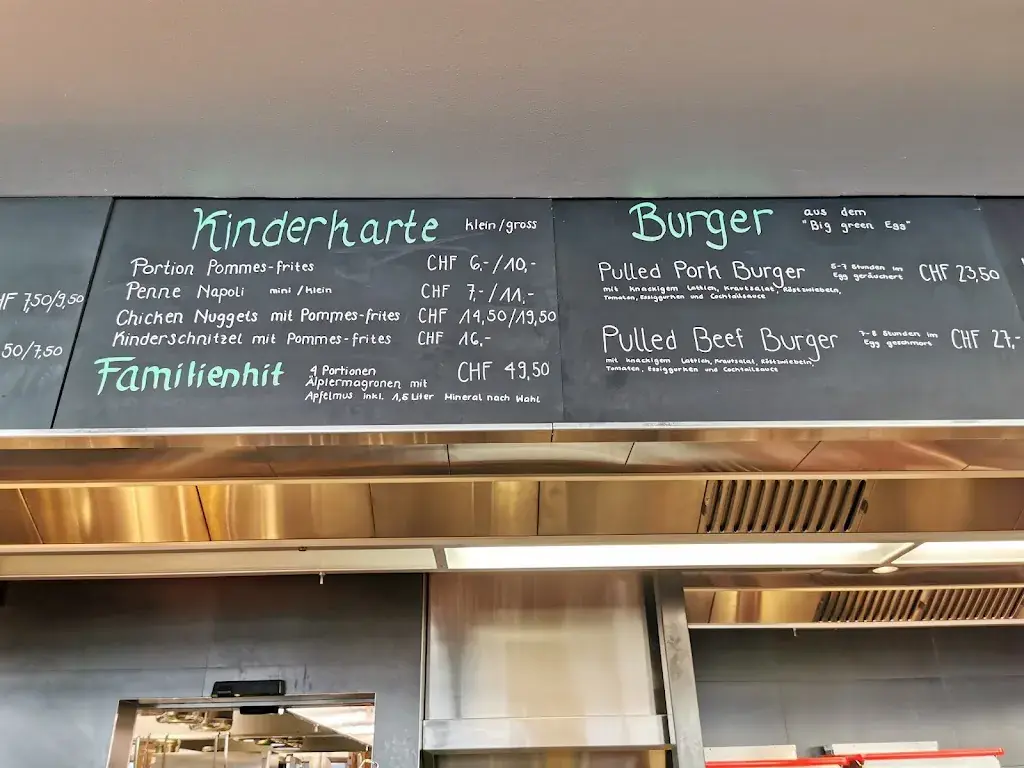 HF 7,50/9,50
50/7,50
Kinderkarte klein/gross
Portion Pommes-frites CHF 6.-/10.-
Penne Napoli mini/klein CHF 7.-/11.-
Chicken Nuggets mit Pommes-frites CHF 14,50/19,50
Kinderschnitzel mit Pommes-frites CHF 16.-
Familienhit 4 Portionen CHF 49,50
Älplermagronen mit
Apfelmus inkl. 1,5 Liter Mineral nach Wahl
Burger aus dem
"Big green Egg"
Pulled Pork Burger 5-7 Stunden im CHF 23,50
Egg geräuchert
mit knackigem Lattich, Krautsalat, Röstzwiebeln,
Tomaten, Essiggurken und Cocktailsauce
Pulled Beef Burger 7-8 Stunden im CHF 27,-
Egg geschmort
mit knackigem Lattich, Krautsalat, Röstzwiebeln,
Tomaten, Essiggurken und Cocktailsauce